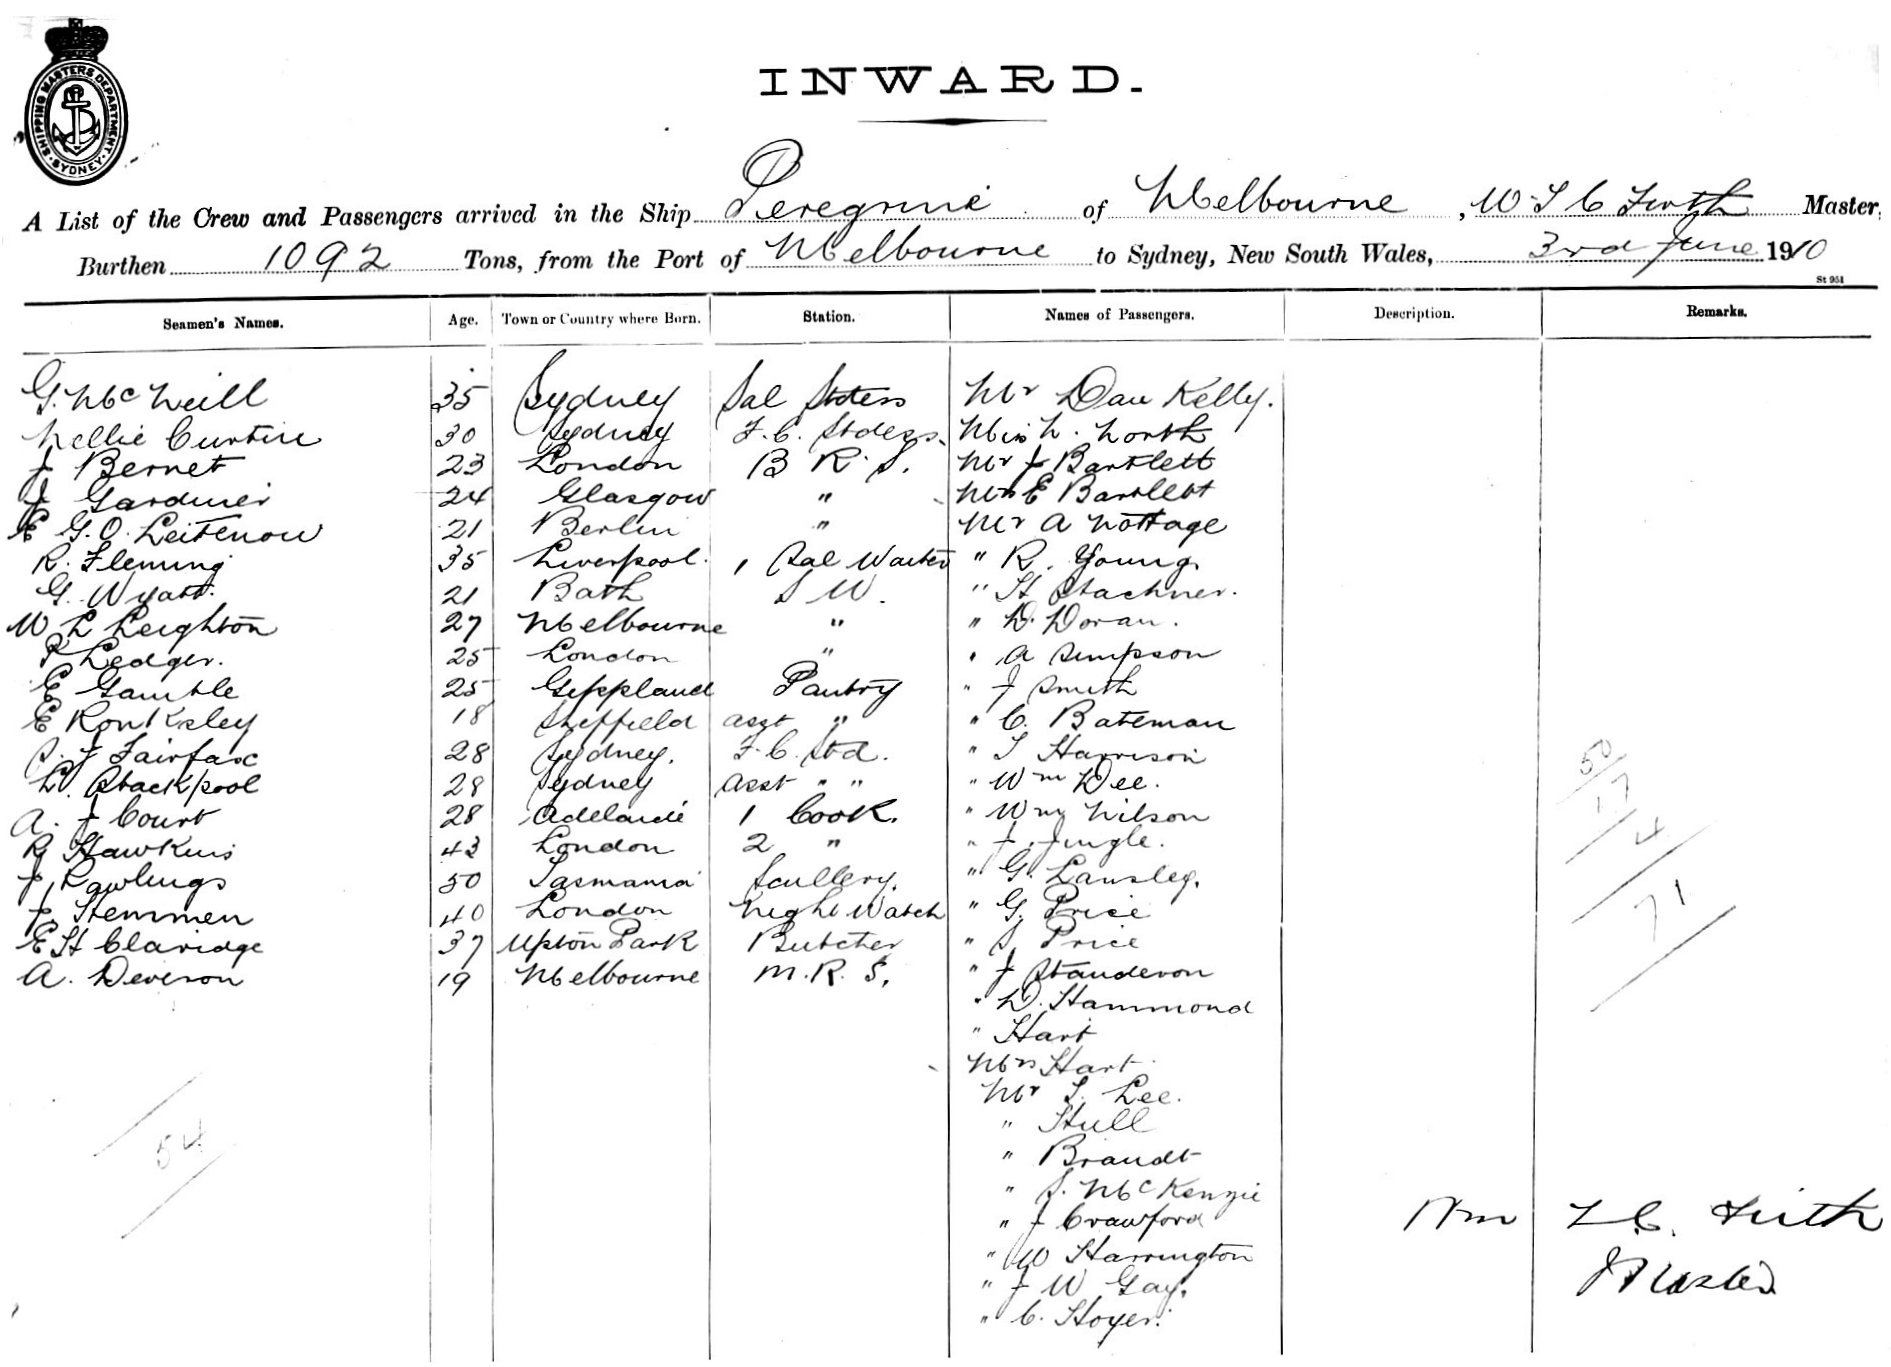 SHIPPING MASTERS DEPARTMENT. SYDNEY
INWARD.
A List of the Crew and Passengers arrived in the Ship Peregrine of Melbourne, W T C Firth Master,
Burthen 1092 Tons, from the Port of Melbourne to Sydney, New South Wales, 3rd June 1910
St 951
Seamen's Names. Age. Town or Country where Born. Station. Names of Passengers. Description. Remarks.
G. McNeill 35 Sydney Sal Stdess Mr Dan Kelly.
Nellie Curtin 30 Sydney F. C. Stdess. Miss N. North
J Bernet 23 London B R. S. Mr J Bartlett
J Gardiner 24 Glasgow " Mrs E Bartlett
E G. O. Leitenow 21 Berlin " Mr A Nottage
R. Fleming 35 Liverpool. 1 Sal Waiter " R. Young.
G. Wyatt. 21 Bath S W. " H Stachner.
W L Leighton 27 Melbourne " " D. Doran.
P Ledger. 25 London " " A Simpson
E Gamble 25 Gippland Pantry " J Smith
E Ronksley 18 Sheffield Asst " " C. Bateman
S. J Fairfax 28 Sydney. F. C. Std. " T Harrison
L. Stackpool 28 Sydney Asst " " " Wm Dee.
A. J Court 28 Adelaide 1 Cook. " Wm Nilson
R Hawkins 43 London 2 " " J. Jingle.
J Rawlings 50 Tasmania Scullery. " G. Lansley.
J. Hemmen 40 London Night Watch " G. Price
E H Claridge 37 Upton Park Butcher " S. Price
A. Deverson 19 Melbourne M. R. S. " J Standevon
" D. Hammond
" Hart
Mrs Hart
Mr T. Lee.
" Hull
" Brandt
" S. McKenzie
" J Crawford
" W Harrington
" J W Gay.
" C. Hoyer.
50
17
4
71
54
Wm T. C. Firth
Master